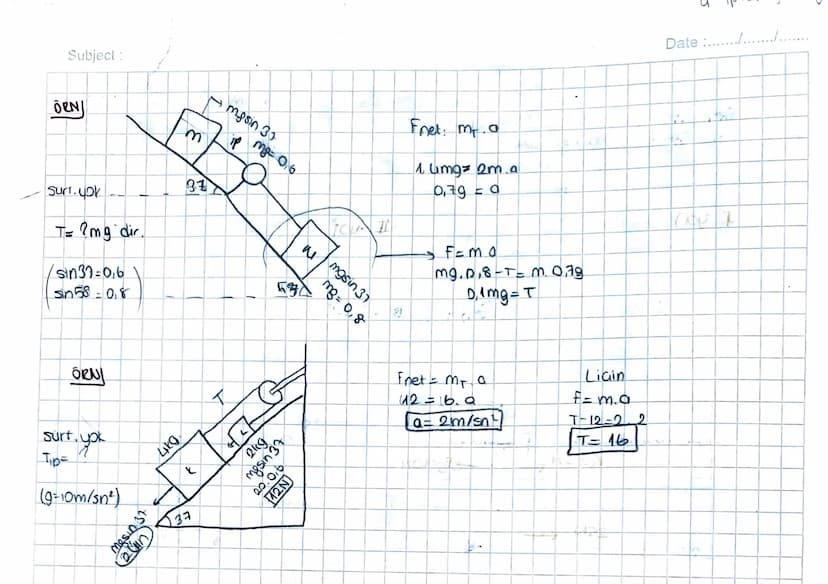 Date :......./......./.......
Subject :
ÖRN
m
mgsin 37
ip mg= 0,6
37
sürt.yok
T= ?mg'dir.
(sin37=0,6
sin53 = 0,8)
53
mgsin 37
mg= 0,8
Fnet: mT.a
1.4mg= 2m.a
0,7g = a
F= m.a
mg.0,8-T= m.0,7g
0,1mg=T
ÖRN
sürt.yok
Tip= ?
(g=10m/sn²)
T
4kg
2kg
mgsin 37
20.0,6
12N
37
mgsin 37
24N
Fnet = mT.a
12 = 6.a
a= 2m/sn²
L için
F= m.a
T-12=2.2
T= 16